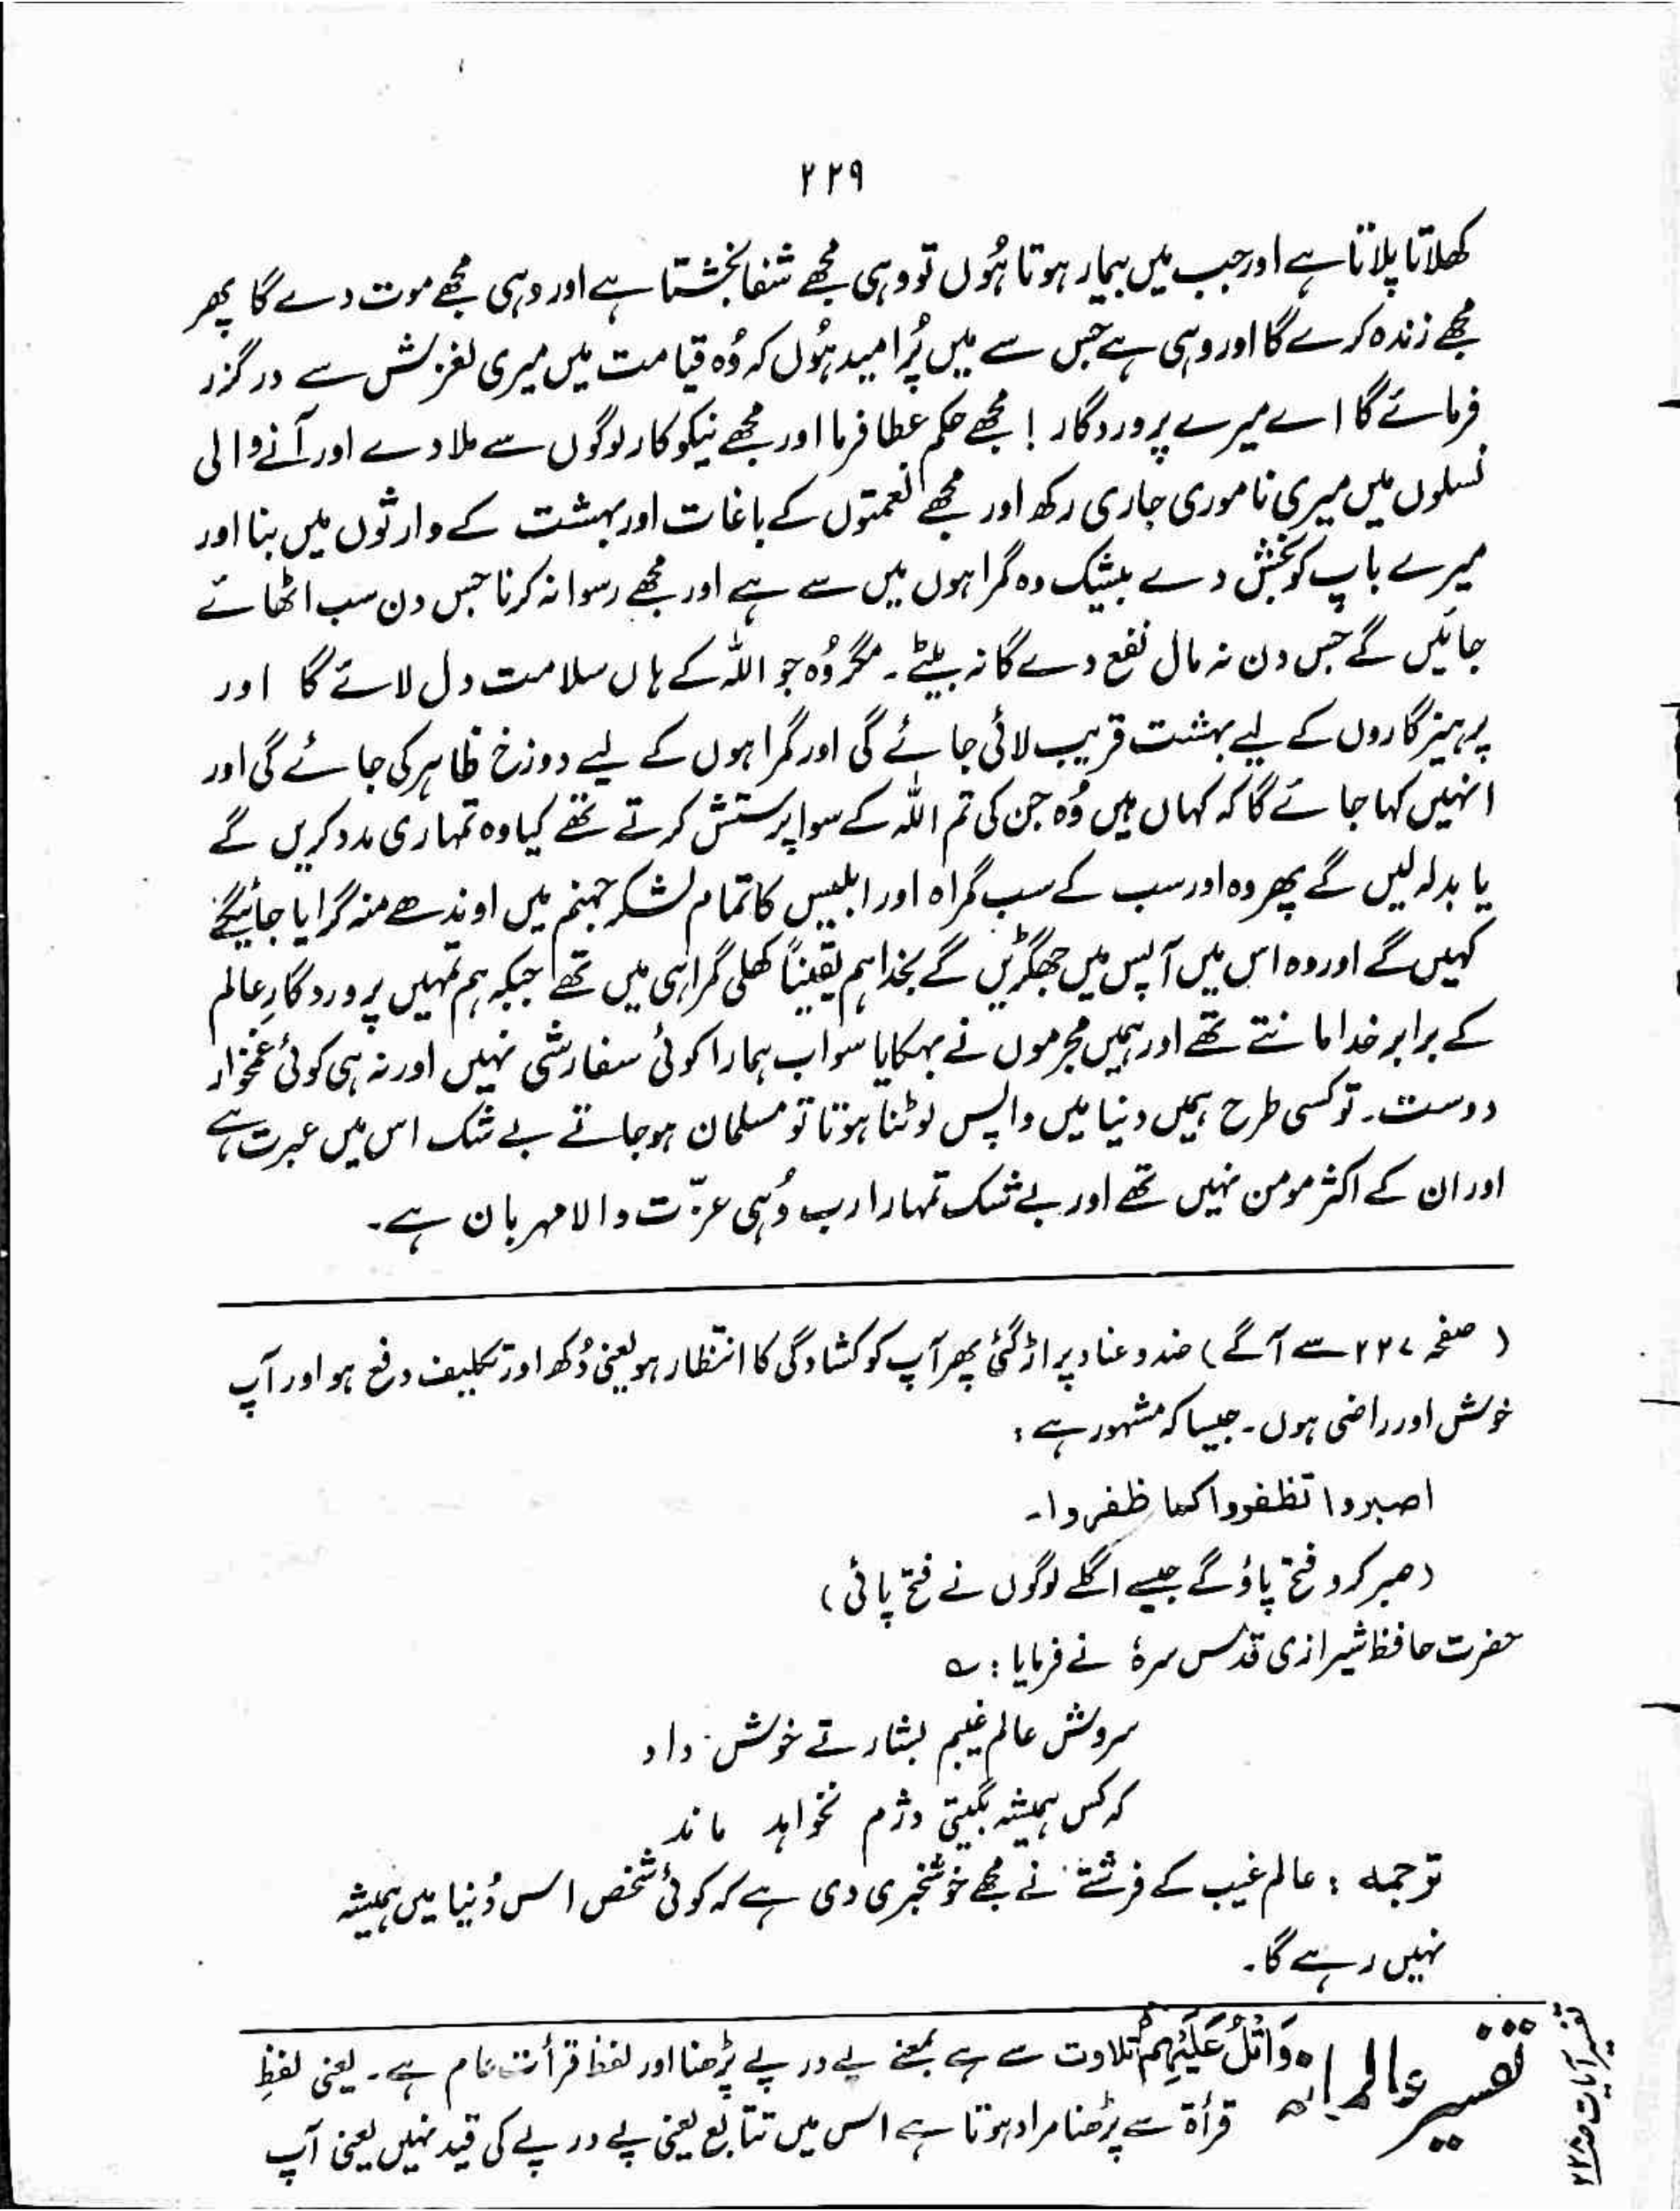 ۲۲۹
کھلاتا پلاتا ہے اور جب میں بیمار ہوتا ہُوں تو وہی مجھے شفا بخشتا ہے اور وہی مجھے موت دے گا پھر
مجھے زندہ کرے گا اور وہی ہے جس سے میں پُر امید ہُوں کہ وُہ قیامت میں میری لغزش سے در گزر
فرمائے گا اے میرے پروردگار ! مجھے حکم عطا فرما اور مجھے نیکوکار لوگوں سے ملا دے اور آنے والی
نسلوں میں میری ناموری جاری رکھ اور مجھے نعمتوں کے باغات اور بہشت کے وارثوں میں بنا اور
میرے باپ کو بخش دے بیشک وہ گمراہوں میں سے ہے اور مجھے رسوا نہ کرنا جس دن سب اٹھائے
جائیں گے جس دن نہ مال نفع دے گا نہ بیٹے۔ مگر وُہ جو اللہ کے ہاں سلامت دل لائے گا اور
پرہیزگاروں کے لیے بہشت قریب لائی جائے گی اور گمراہوں کے لیے دوزخ ظاہر کی جائے گی اور
انہیں کہا جائے گا کہ کہاں ہیں وُہ جن کی تم اللہ کے سوا پرستش کرتے تھے کیا وہ تمہاری مدد کریں گے
یا بدلہ لیں گے پھر وہ اور سب کے سب گمراہ اور ابلیس کا تمام لشکر جہنم میں اوندھے منہ گرایا جائیگے
کہیں گے اور وہ اس میں آپس میں جھگڑیں گے بخدا ہم یقیناً کھلی گمراہی میں تھے جبکہ ہم تمہیں پروردگارِ عالم
کے برابر خدا مانتے تھے اور ہمیں مجرموں نے بہکایا سو اب ہمارا کوئی سفارشی نہیں اور نہ ہی کوئی غمخوار
دوست۔ تو کسی طرح ہمیں دنیا میں واپس لوٹنا ہوتا تو مسلمان ہو جاتے بے شک اس میں عبرت ہے
اور ان کے اکثر مومن نہیں تھے اور بے شک تمہارا رب وُہی عزّت والا مہربان ہے۔
( صفحہ ۲۲۷ سے آگے ) ضد و عناد پر اڑ گئی پھر آپ کو کشادگی کا انتظار ہو یعنی دُکھ اور تکلیف دفع ہو اور آپ
خوش اور راضی ہوں۔ جیسا کہ مشہور ہے :
اصبروا تظفروا کما ظفروا۔
(صبر کرو فتح پاؤ گے جیسے اگلے لوگوں نے فتح پائی)
حضرت حافظ شیرازی قدس سرہٗ نے فرمایا : ؎
سروش عالم غیبم بشارتے خوش داد
کہ کس ہمیشہ بگیتی دژم نخواہد ماند
ترجمہ : عالم غیب کے فرشتے نے مجھے خوشخبری دی ہے کہ کوئی شخص اس دُنیا میں ہمیشہ
نہیں رہے گا۔
تفسیر عالمانہ وَاتْلُ عَلَيْهِمْ تلاوت سے ہے بمعنے پے در پے پڑھنا اور لفظ قرأت عام ہے۔ یعنی لفظِ
قرأۃ سے پڑھنا مراد ہوتا ہے اس میں تتابع یعنی پے در پے کی قید نہیں یعنی آپ
تفسیر آیات صفحہ ۲۲۸